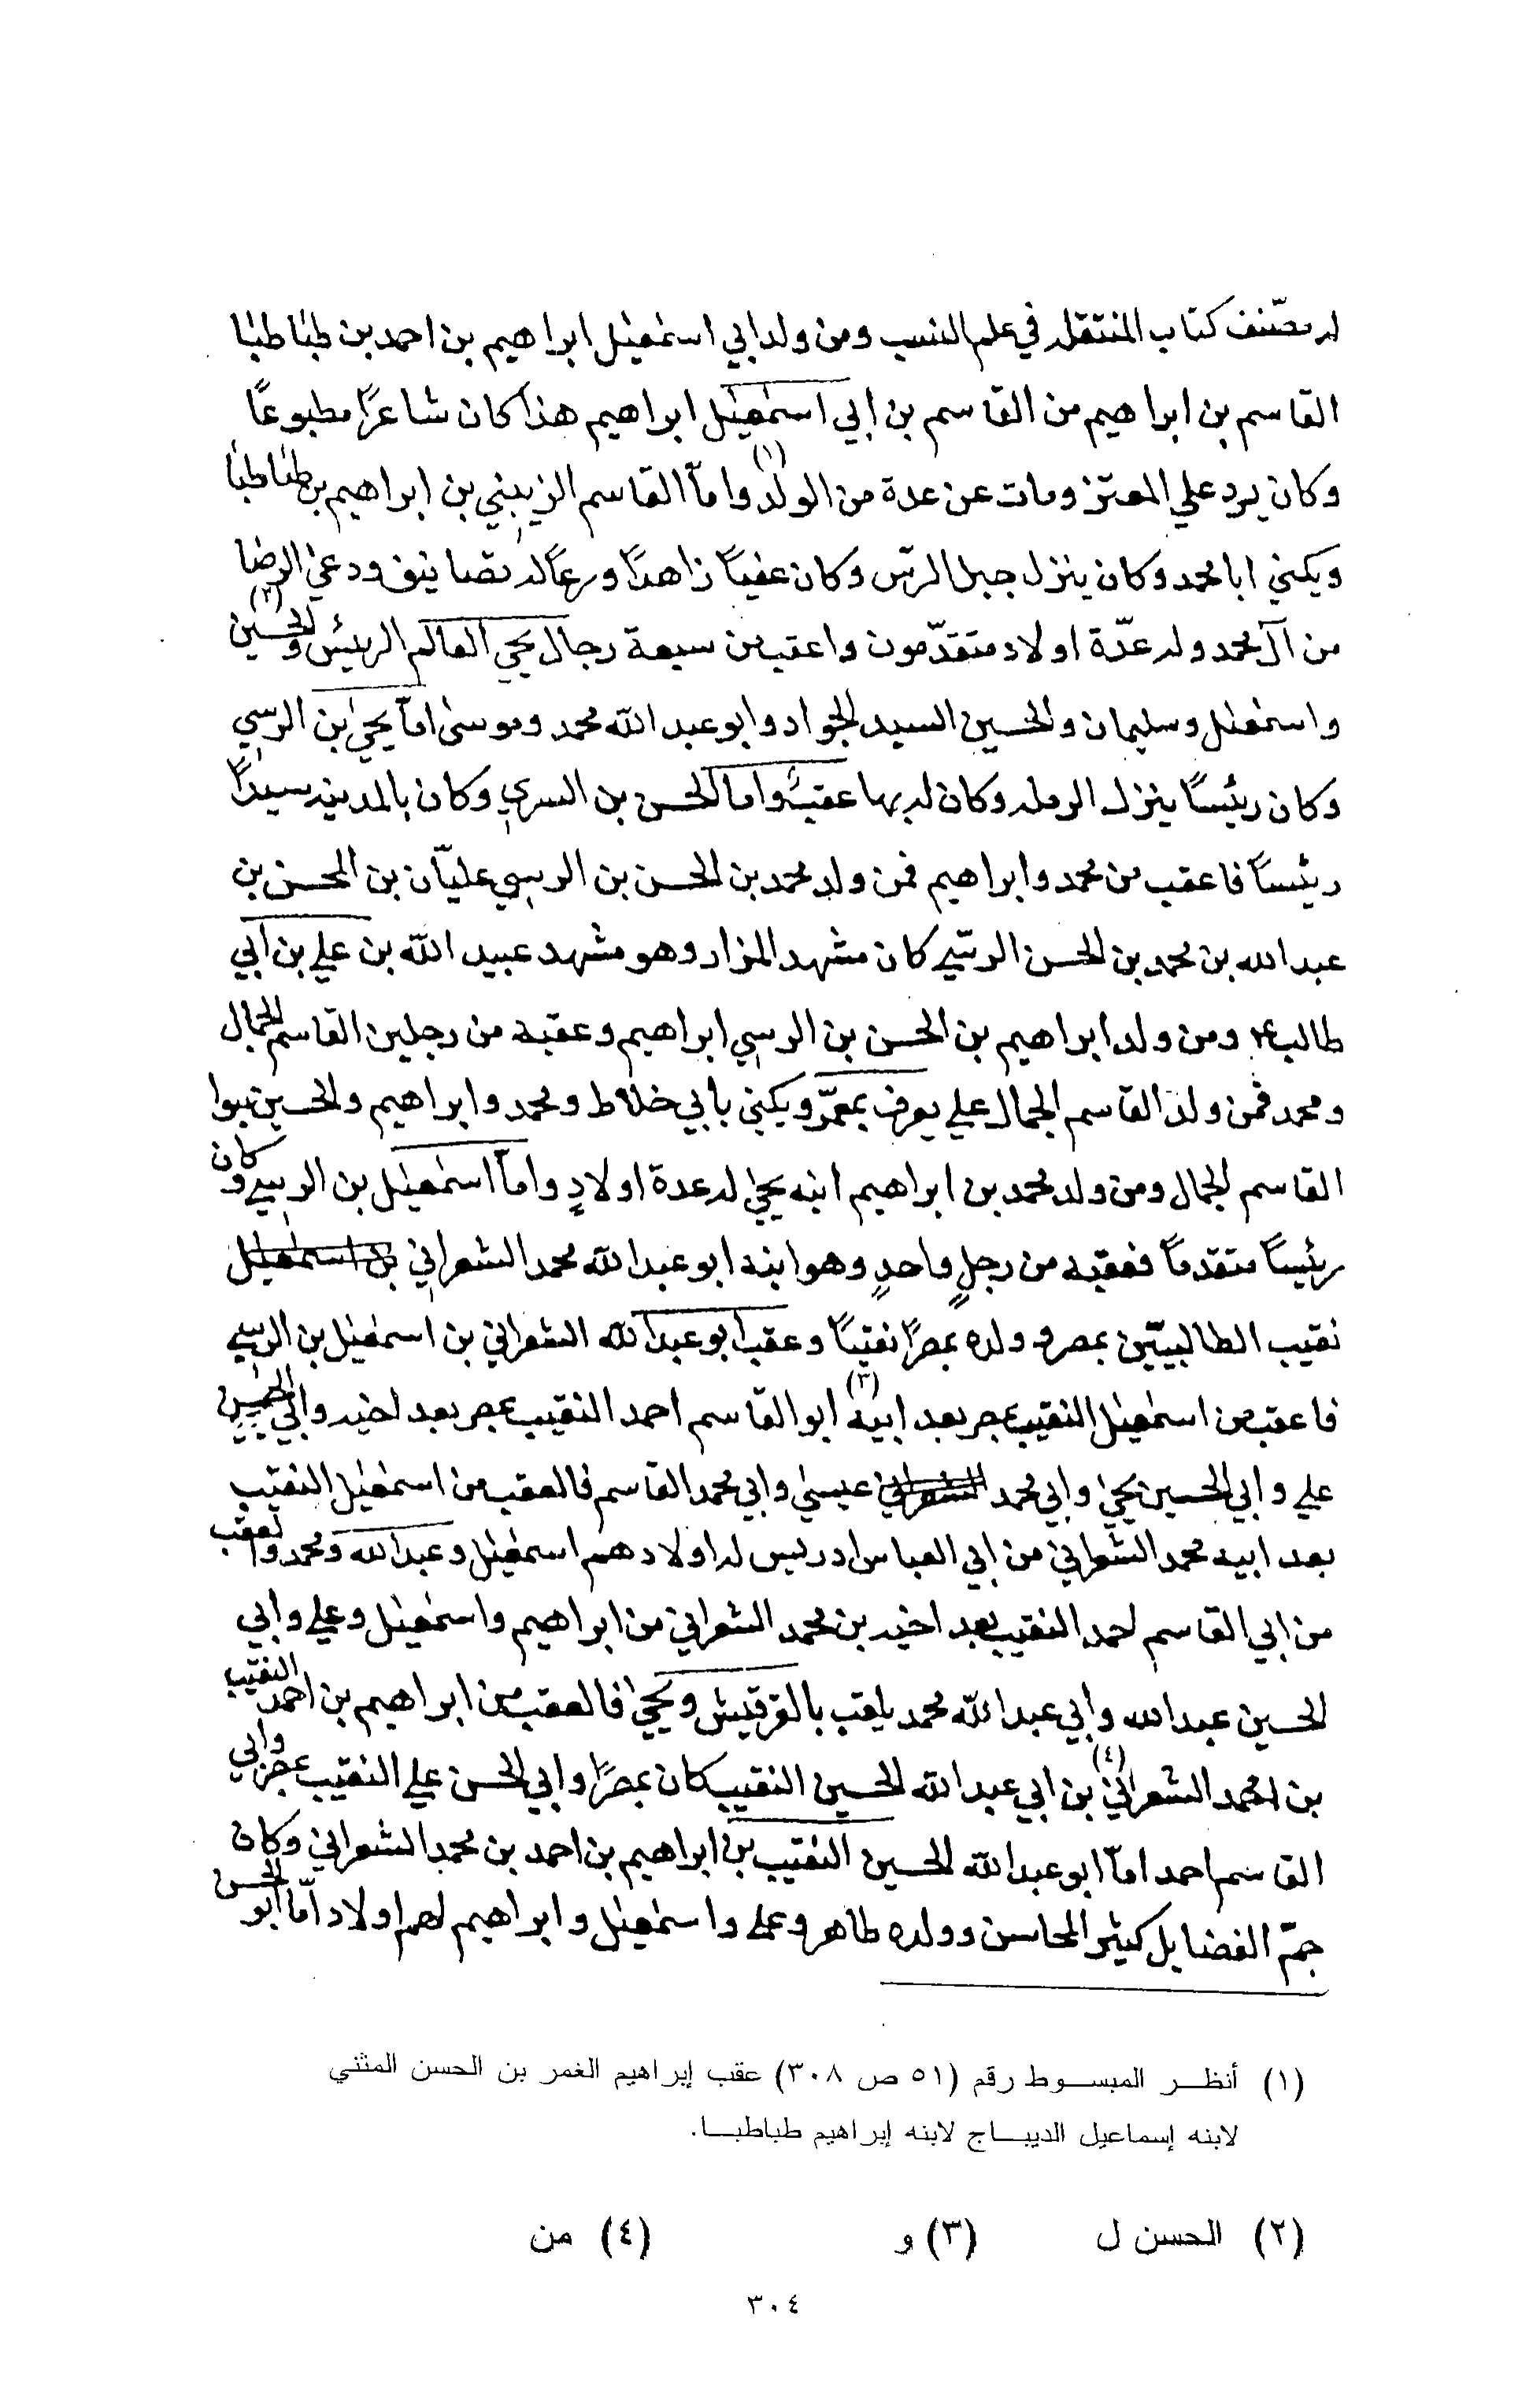 له مصّنف كتاب المنتقله في علم النسب ومن ولد ابي اسمٰعيل ابراهيم بن احمد بن طباطبا
القاسم بن ابراهيم من القاسم بن ابي اسمٰعيل ابراهيم هذا كان شاعرًا مطبوعًا
وكان يرد علي المعتز ومات عن عدة من الولد (١) وامآ القاسم الزينبي بن ابراهيم بن طباطبا
ويكني ابا محمد وكان ينزل جبل الرسّ وكان عفيًا زاهدًا ورعًا له تصانيف ودعي الرضا
من آل محمد وله عدّة اولاد متقدّمون واعقب من سبعة رجال يحيي العالم الرئيس والحسين (٢)
واسمٰعيل وسليمان والحسين السيد الجواد وابو عبد الله محمد وموسىٰ امآ يحيىٰ بن الرسي
وكان رئيسًا ينزل الرمله وكان له بها عقب واما الحسن بن السري وكان بالمدينه سيدًا
رئيسًا فاعقب من محمد وابراهيم فمن ولد محمد بن الحسن بن الرسي عليّان بن المحسن بن
عبد الله بن محمد بن الحسن الرسّي كان مشهد المزار وهو مشهد عبيد الله بن علي بن ابي
طالب ع ومن ولد ابراهيم بن الحسن بن الرسي ابراهيم وعقبه من رجلين القاسم الجمال
ومحمد فمن ولد القاسم الجمال علي يعرف بمعمّر ويكني بابي خلاط ومحمد وابراهيم والحسين بنوا
القاسم الجمال ومن ولد محمد بن ابراهيم ابنه يحيىٰ له عدة اولادٍ وامآ اسمٰعيل بن الرسي وكان
رئيسًا متقدمًا فعقبه من رجلٍ واحدٍ وهو ابنه ابو عبد الله محمد الشعراني بن اسمٰعيل
نقيب الطالبييّن بمصر وولده بمصرًا نقيبًا وعقب ابو عبد الله الشعراني بن اسمٰعيل بن الرسي
فاعقب من اسمٰعيل النقيب بمصر بعد ابيه (٣) ابو القاسم احمد النقيب بمصر بعد اخيه وابي الحسن
علي وابي الحسين يحيىٰ وابي محمد الشعراني عيسىٰ وابي محمد القاسم فالعقب من اسمٰعيل النقيب
بعد ابيه محمد الشعراني من ابي العباس ادريس له اولاد هم اسمٰعيل وعبد الله ومحمد والعقب
من ابي القاسم احمد النقيب بعد اخيه بن محمد الشعراني من ابراهيم واسمٰعيل وعلي وابي
الحسين عبد الله وابي عبد الله محمد يلقب بالقرقيش ويحيىٰ فالعقب من ابراهيم بن احمد النقيب
بن محمد الشعراني (٤) بن ابي عبد الله الحسين النقيب كان بمصرًا وابي الحسن علي النقيب بمصر وابي
القاسم احمد امآ ابو عبد الله الحسين النقيب بن ابراهيم بن احمد بن محمد الشعراني وكان
جمّ الفضايل كثير المحاسن وولده طاهر وعلي واسمٰعيل وابراهيم لهم اولاد امّا ابو الحسن
(١) أنظر المبسوط رقم (٥١ ص ٣٠٨) عقب إبراهيم الغمر بن الحسن المثنى
لابنه إسماعيل الديباج لابنه إبراهيم طباطبا.
(٢) الحسن ل (٣) و (٤) من
٣٠٤